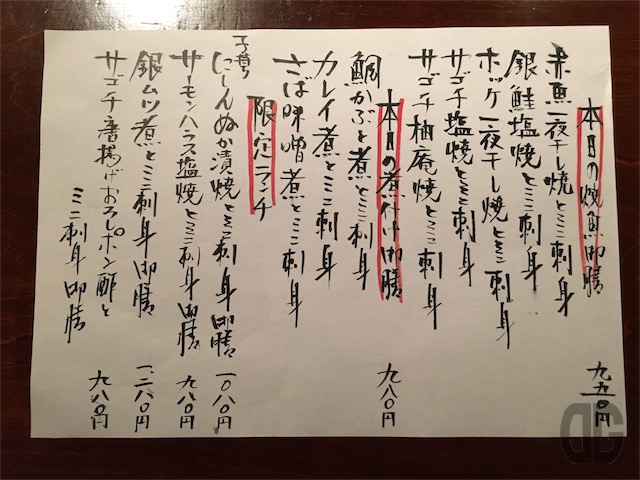 本日の焼魚御膳 九五〇円
赤魚一夜干し焼とミニ刺身
銀鮭塩焼とミニ刺身
ホッケ一夜干し焼とミニ刺身
サゴチ塩焼とミニ刺身
サゴチ柚庵焼とミニ刺身
本日の煮付け御膳 九八〇円
鯛かぶと煮とミニ刺身
カレイ煮とミニ刺身
さば味噌煮とミニ刺身
限定ランチ
子持ちにしんぬか漬焼とミニ刺身御膳 一〇八〇円
サーモンハラス塩焼とミニ刺身御膳 九八〇円
銀ムツ煮とミニ刺身御膳 一二八〇円
サゴチ唐揚げおろしポン酢と
ミニ刺身御膳 九八〇円
DG